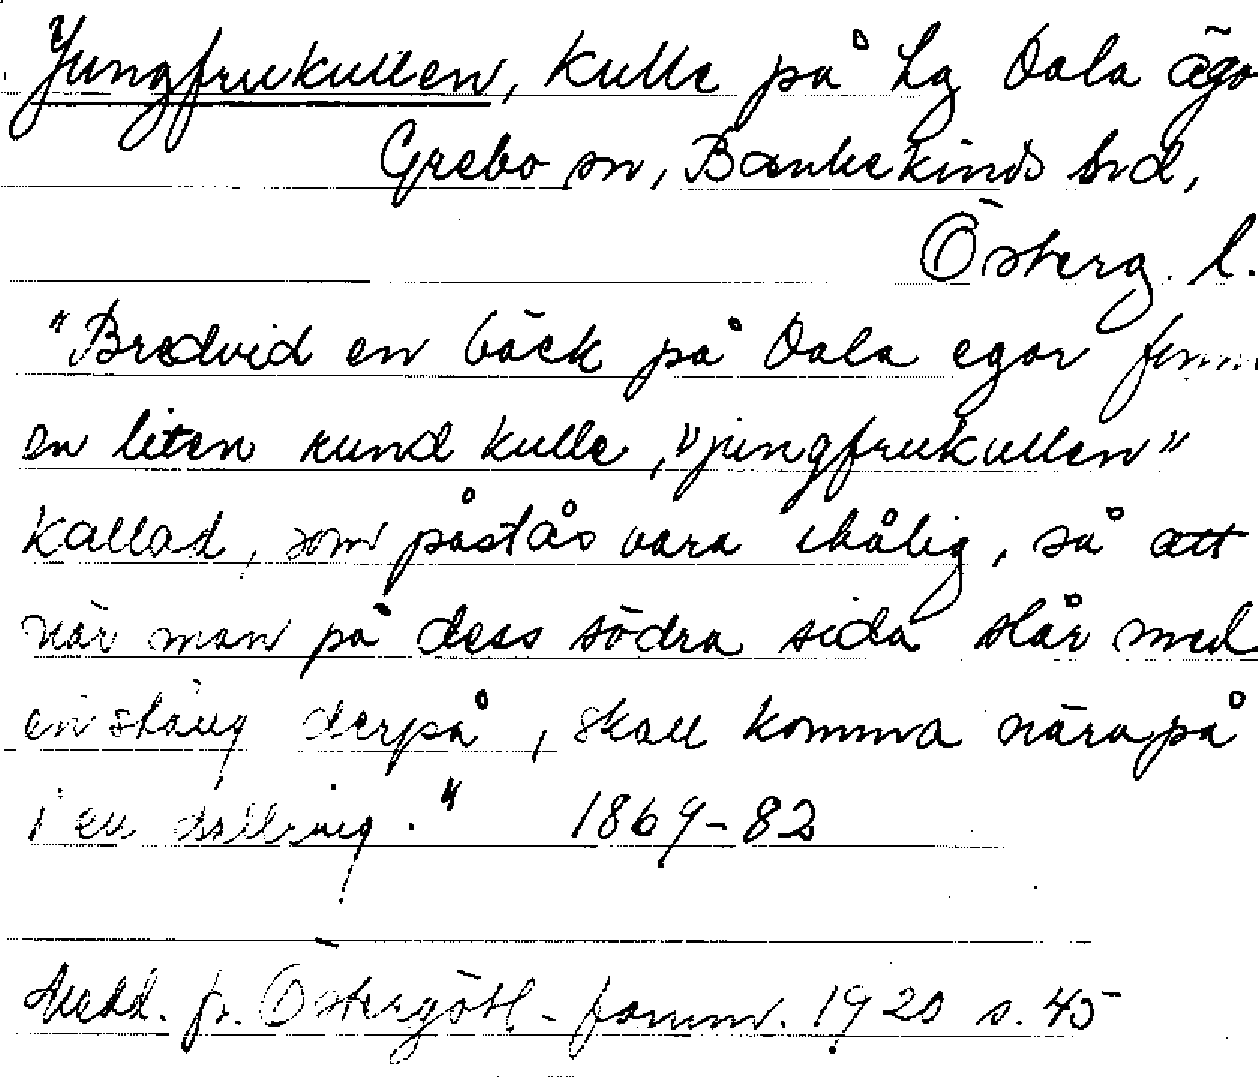 Jungfrukullen, kulle på Lg Dala ägo
Grebo sn, Bankekinds hd,
Österg. l.
"Bredvid en bäck på Dala egor finn
en liten rund kulle, "jungfrukullen"
kallad, som påstås vara ihålig, så att
när man på dess södra sida slår med
en stång derpå, skall komma nära på
i en
." 1869-82
Medd. fr. Östergötl. fornm. 1920 s. 45